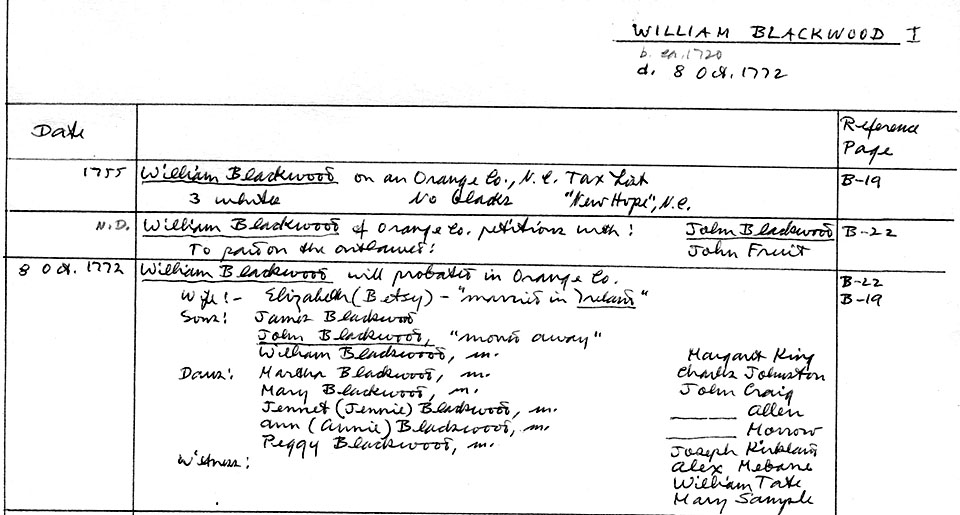 WILLIAM BLACKWOOD I
b. ca. 1720
d. 8 Oct. 1772
Date Reference Page
1755 William Blackwood on an Orange Co., N.C. Tax List B-19
3 whites No blacks "New Hope", N.C.
N.D. William Blackwood of Orange Co. petitions with: John Blackwood B-22
To pardon the outlaws: John Fruit
8 Oct. 1772 William Blackwood will probated in Orange Co. B-22
Wife:- Elizabeth (Betsy) - "married in Ireland" B-19
Sons: James Blackwood
John Blackwood, "moved away"
William Blackwood, m. Margaret King
Daus: Martha Blackwood, m. Charles Johnston
Mary Blackwood, m. John Craig
Jennet (Jennie) Blackwood, m. ______ Allen
Ann (Annie) Blackwood, m. ______ Morrow
Peggy Blackwood, m. Joseph Kirkland
Witness: Alex Mebane
William Tate
Mary Sample